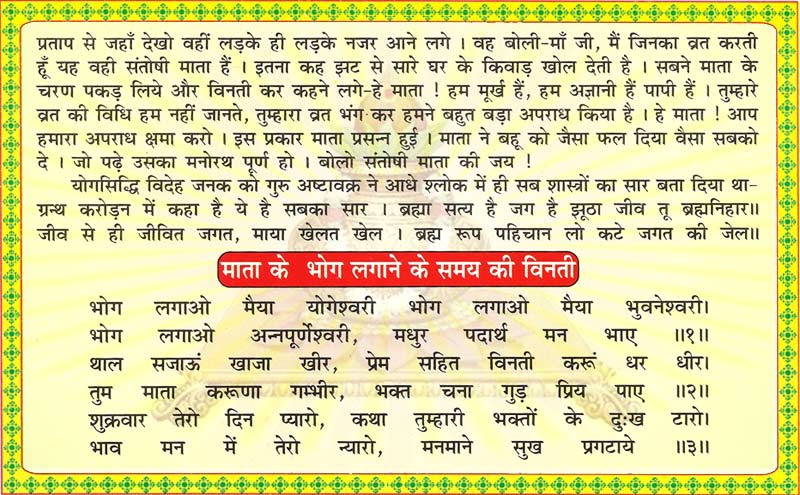 प्रताप से जहाँ देखो वहीं लड़के ही लड़के नजर आने लगे । वह बोली-माँ जी, मैं जिनका व्रत करती
हूँ यह वही संतोषी माता हैं । इतना कह झट से सारे घर के किवाड़ खोल देती है । सबने माता के
चरण पकड़ लिये और विनती कर कहने लगे-हे माता ! हम मूर्ख हैं, हम अज्ञानी हैं पापी हैं । तुम्हारे
व्रत की विधि हम नहीं जानते, तुम्हारा व्रत भंग कर हमने बहुत बड़ा अपराध किया है । हे माता ! आप
हमारा अपराध क्षमा करो । इस प्रकार माता प्रसन्न हुई । माता ने बहू को जैसा फल दिया वैसा सबको
दे । जो पढ़े उसका मनोरथ पूर्ण हो । बोलो संतोषी माता की जय !
योगसिद्धि विदेह जनक को गुरु अष्टावक्र ने आधे श्लोक में ही सब शास्त्रों का सार बता दिया था-
ग्रन्थ करोड़न में कहा है ये है सबका सार । ब्रह्मा सत्य है जग है झूठा जीव तू ब्रह्मनिहार॥
जीव से ही जीवित जगत, माया खेलत खेल । ब्रह्म रूप पहिचान लो कटे जगत की जेल॥
माता के भोग लगाने के समय की विनती
भोग लगाओ मैया योगेश्वरी भोग लगाओ मैया भुवनेश्वरी।
भोग लगाओ अन्नपूर्णेश्वरी, मधुर पदार्थ मन भाए ॥१॥
थाल सजाऊं खाजा खीर, प्रेम सहित विनती करूं धर धीर।
तुम माता करूणा गम्भीर, भक्त चना गुड़ प्रिय पाए ॥२॥
शुक्रवार तेरो दिन प्यारो, कथा तुम्हारी भक्तों के दुःख टारो।
भाव मन में तेरो न्यारो, मनमाने सुख प्रगटाये ॥३॥